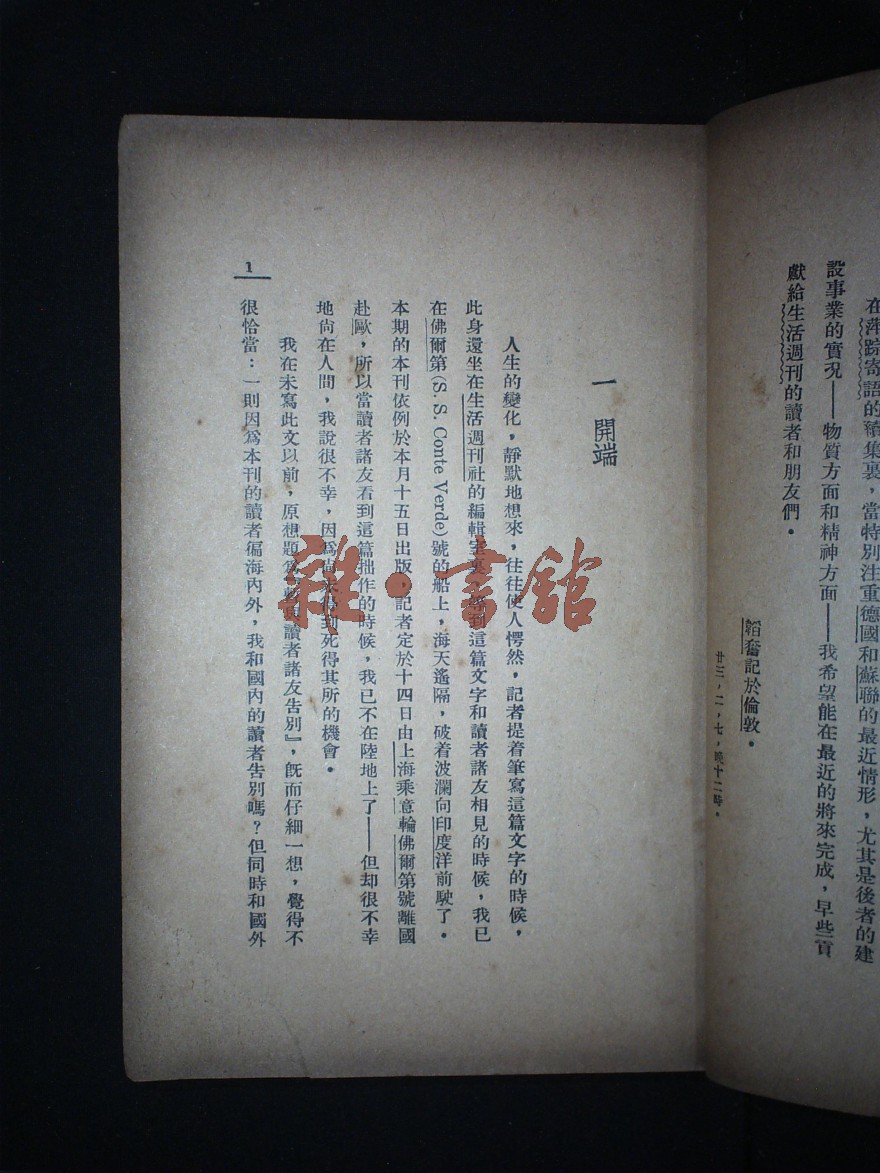 在萍踪寄語的續集裏，當特別注重德國和蘇聯的最近情形，尤其是後者的建
設事業的實況——物質方面和精神方面——我希望能在最近的將來完成，早些貢
獻給生活週刊的讀者和朋友們。
韜奮記於倫敦。
廿三，二，七，晚十二時。
一 開端
人生的變化，靜默地想來，往往使人愕然，記者提着筆寫這篇文字的時候，
此身還坐在生活週刊社的編輯室裏，等到這篇文字和讀者諸友相見的時候，我已
在佛爾第(S. S. Conte Verde)號的船上，海天遙隔，破着波瀾向印度洋前駛了。
本期的本刊依例於本月十五日出版，記者定於十四日由上海乘意輪佛爾第號離國
赴歐，所以當讀者諸友看到這篇拙作的時候，我已不在陸地上了——但却很不幸
地尙在人間，我說很不幸，因爲尙未得到死得其所的機會。
我在未寫此文以前，原想題爲『與讀者諸友告別』，旣而仔細一想，覺得不
很恰當：一則因爲本刊的讀者徧海內外，我和國內的讀者告別嗎？但同時和國外
1
雜·書館